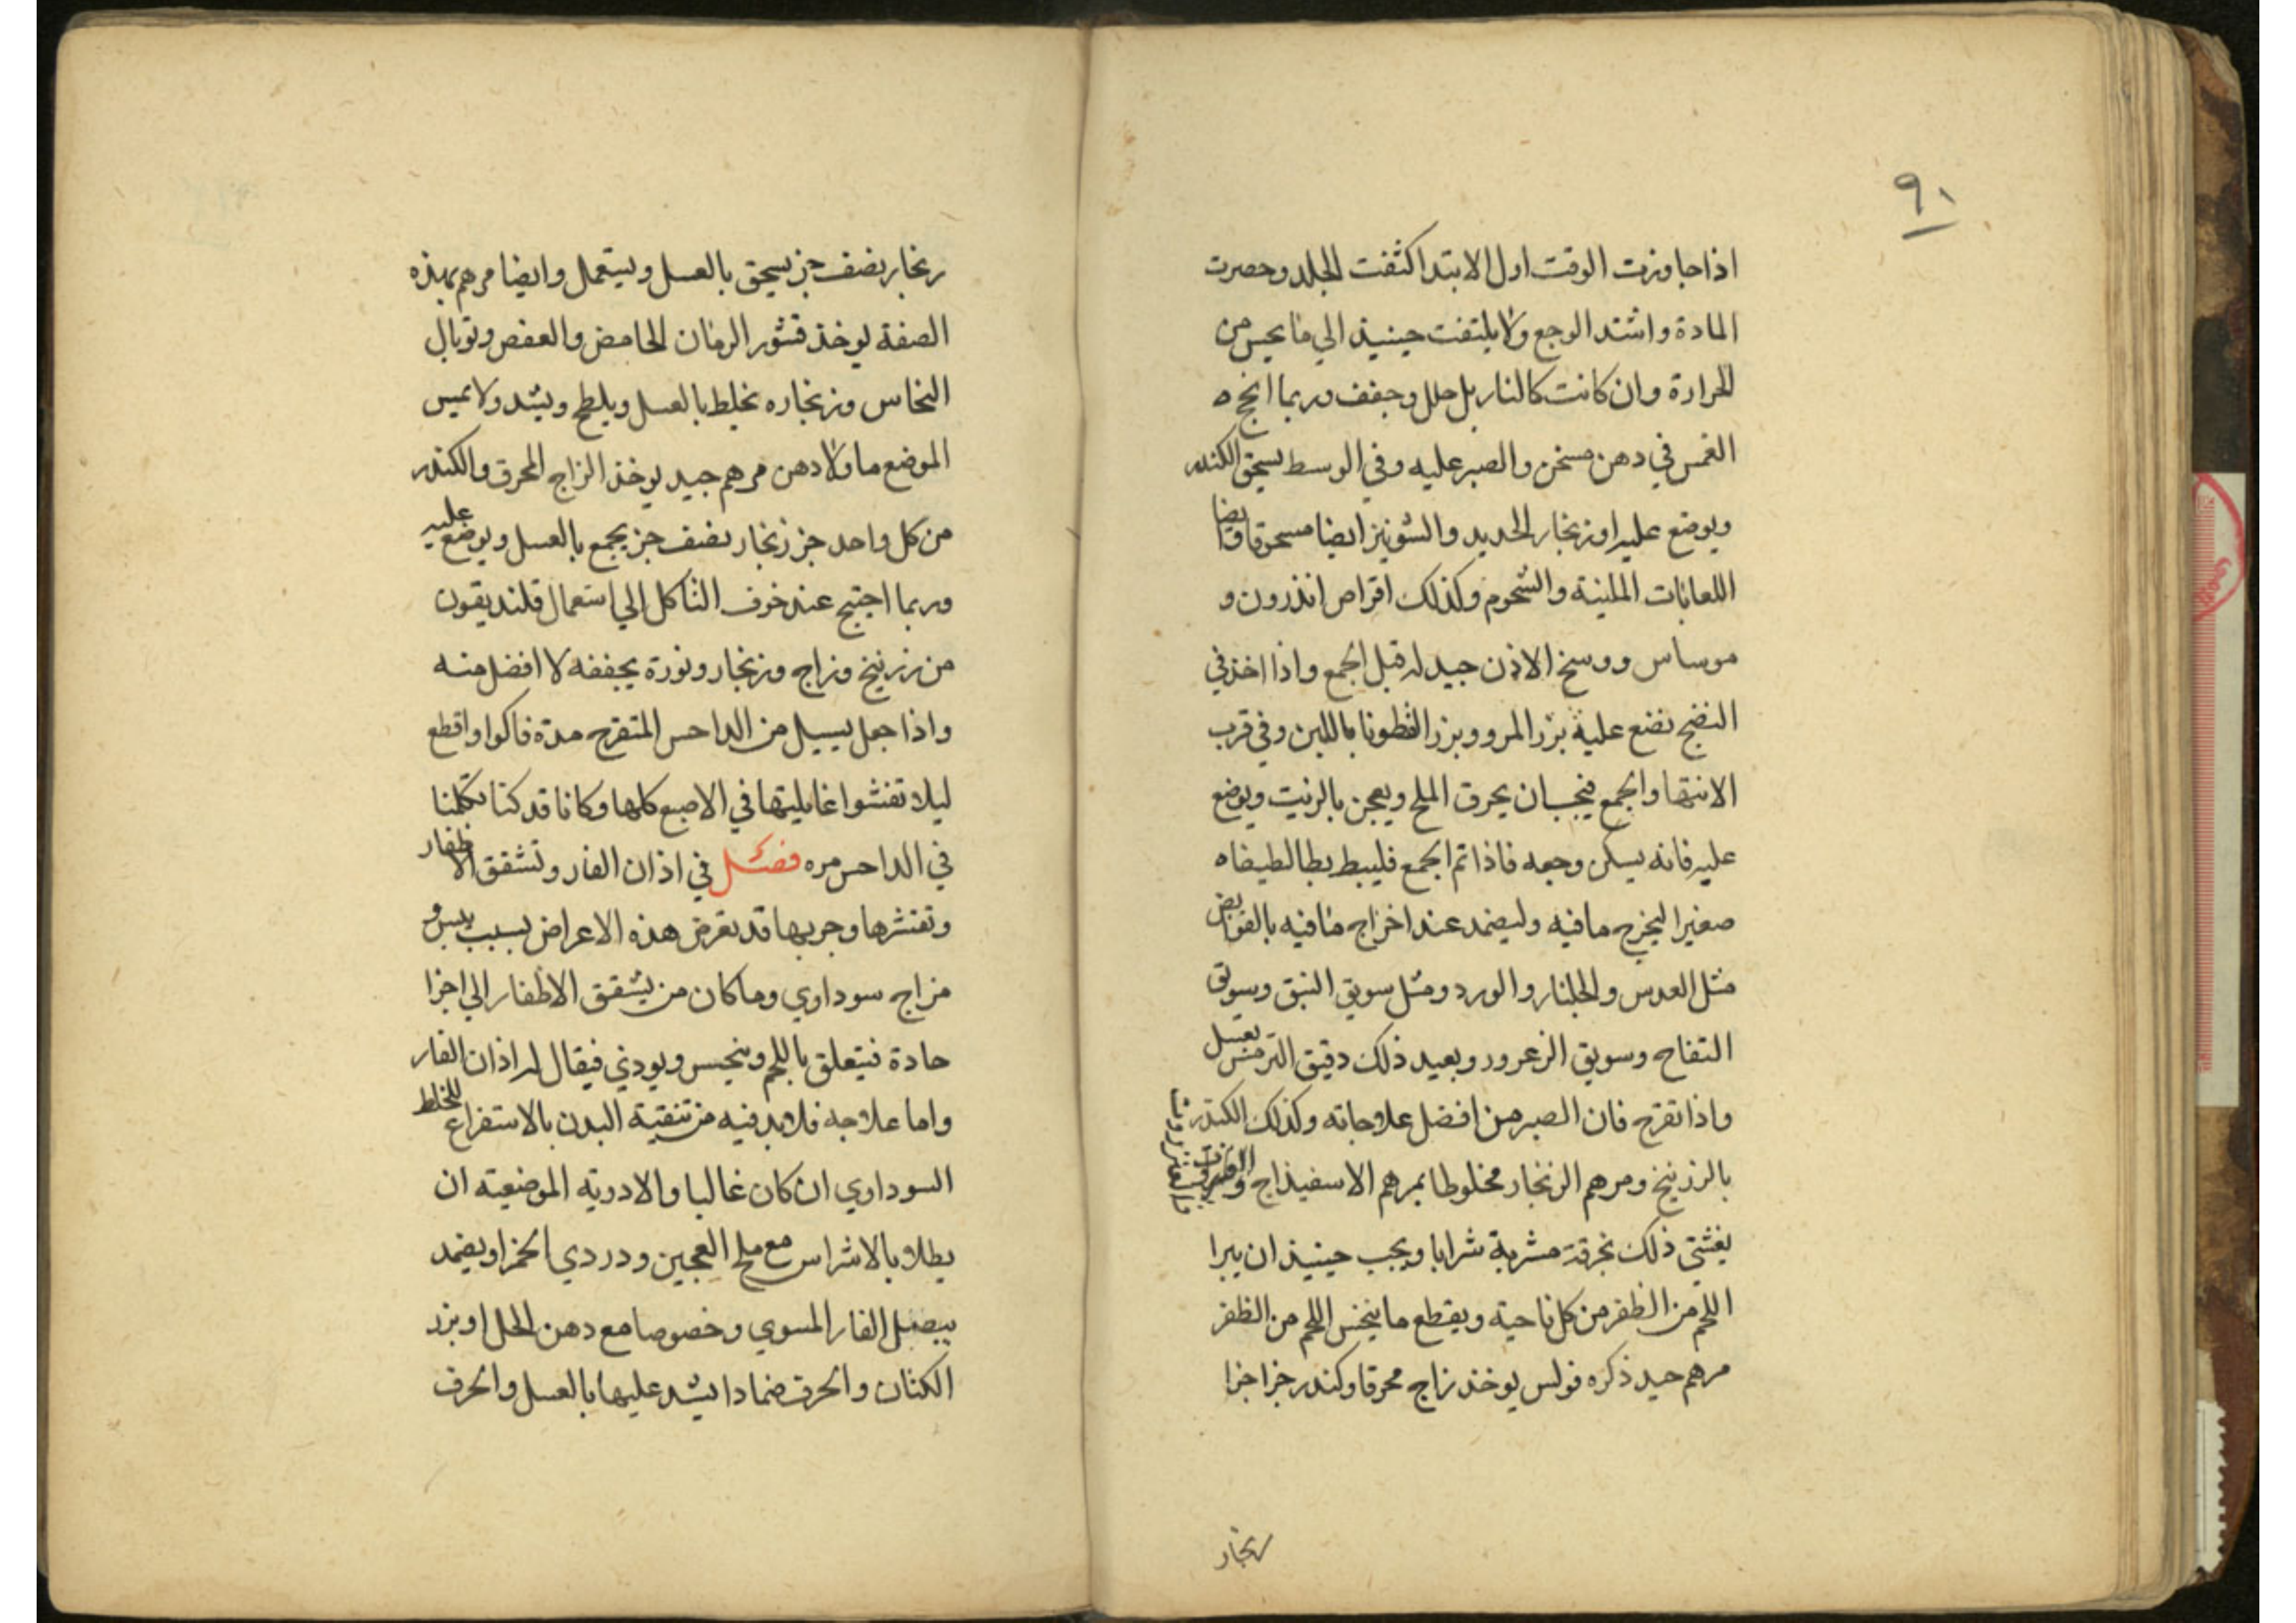 ٩١
اذا جاوزت الوقت اول الابتدا كثفت الجلد وحصرت
المادة واشتد الوجع ولا يلتفت حينيذ الي ما يحس من
الحرارة وان كانت كالنار بل حلل وجفف وربما انجح ه
الغمس في دهن مسخن والصبر عليه وفي الوسط يسحق الكندر
ويوضع عليه او زنجار الحديد والشونيز ايضا مسحوقا وايضا
اللعابات الملينة والشحوم وكذلك اقراص انذرون و
موساس ووسخ الاذن جيد له قبل الجمع واذا اخذ في
النضج نضع عليه بزر المرو وبزر القطونا باللبن وفي قرب
الانتها والجمع فيجب ان يحرق الملح ويعجن بالزيت ويوضع
عليه فانه يسكن وجعه فاذا تم الجمع فليبط بطا لطيفا ه
صغيرا ليخرج ما فيه وليضمد عند اخراج ما فيه بالقوابض
مثل العدس والجلنار والورد ومثل سويق النبق وسويق
التفاح وسويق الزعرور وبعيد ذلك دقيق الترمس بعسل
واذا تقرح فان الصبر من افضل علاجاته وكذلك الكندر
بالزرنيخ ومرهم الزنجار مخلوطا بمرهم الاسفيذاج
يغشي ذلك بخرقة مشربة شرابا ويجب حينيذ ان يبرا
اللحم من الظفر من كل ناحية ويقطع ما ينخس اللحم من الظفر
مرهم جيد ذكره فولس يوخذ زاج محرقا وكندر جزا جزا
زنجار
زنجار نصف جز يسحق بالعسل ويستعمل وايضا مرهم بهذه
الصفة يوخذ قشور الرمان الحامض والعفص وتوبال
النحاس وزنجاره نخلط بالعسل ويلطخ ويشد ولا يميس
الموضع ما ولا دهن مرهم جيد يوخذ الزاج المحرق والكندر
من كل واحد جز زنجار نصف جز يجمع بالعسل ويوضع عليه
وربما احتيج عند خوف التاكل الي استعمال قلنديقون
من زرنيخ وزاج وزنجار ونورة يجففه لا افضل منه
واذا جعل يسيل من الداحس المتقرح مدة فاكوا واقطع
ليلا تفشوا غايليتها في الاصبع كلها وكانا قد كنا تكلمنا
في الداحس مره فصل في اذان الفار وتشقق الاظفار
وتقشرها وجربها قد تعرض هذه الاعراض بسبب يبس و
مزاج سوداوي وما كان من يشقق الاظفار الي اجزا
حادة فيتعلق باللحم وينخس ويوذي فيقال له اذان الفار
واما علاجه فلا بد فيه من تنقية البدن بالاستفراغ للخلط
السوداوي ان كان غالبا والادوية الموضعيته ان
يطلا بالاشراس مع ملح العجين ودردي الخمر او يضمد
ببصل الفار المسوي وخصوصا مع دهن الحل او بزر
الكتان والحرف ضمادا يشد عليها بالعسل والحرف